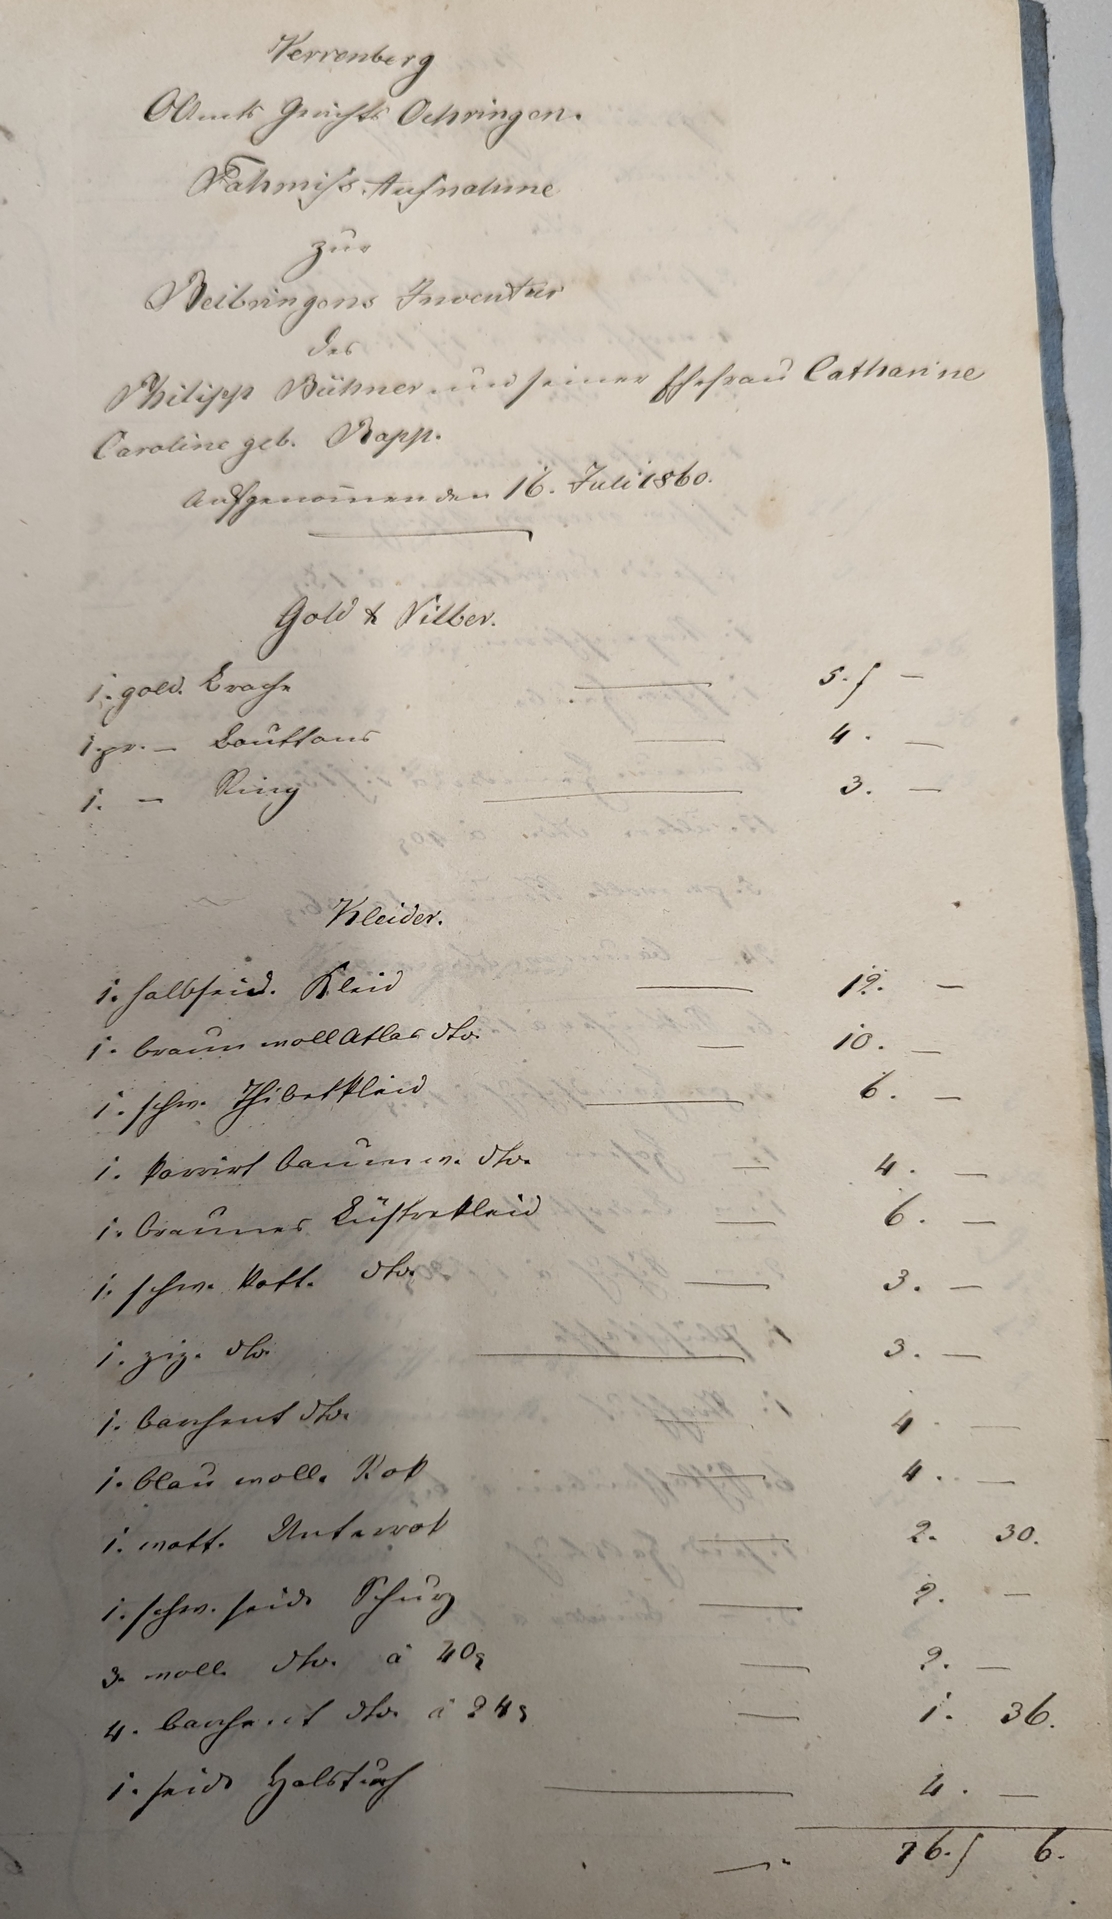 Verrenberg
OAmts Gerichts Oehringen.
Fahrniß-Aufnahme
zur
Beibringens Inventur
des
Philipp Bühner und seiner Ehefrau Catharine
Caroline geb. Rapp.
Aufgenommen den 16. Juli 1860.
Gold & Silber.
1. gold. Broche — 5. f —
1. pr. — Bouttons — 4. —
1. — Ring — 3. —
Kleider.
1. halbseid. Kleid — 12. —
1. braun woll Atlas dto. — 10. —
1. schw. Thibetkleid — 6. —
1. karrirt baumw. dto. — 4. —
1. braunes Lüstrekleid — 6. —
1. schw. katt. dto. — 3. —
1. ziz. dto. — 3. —
1. barchent dto. — 4. —
1. blau woll. Rok — 4. —
1. watt. Unterrok — 2. 30.
1. schw. seid. Schurz — 2. —
3. woll. dto. à 40x — 2. —
4. barchent dto. à 24x — 1. 36.
1. seid. Halstuch — 4. —
76. f 6.